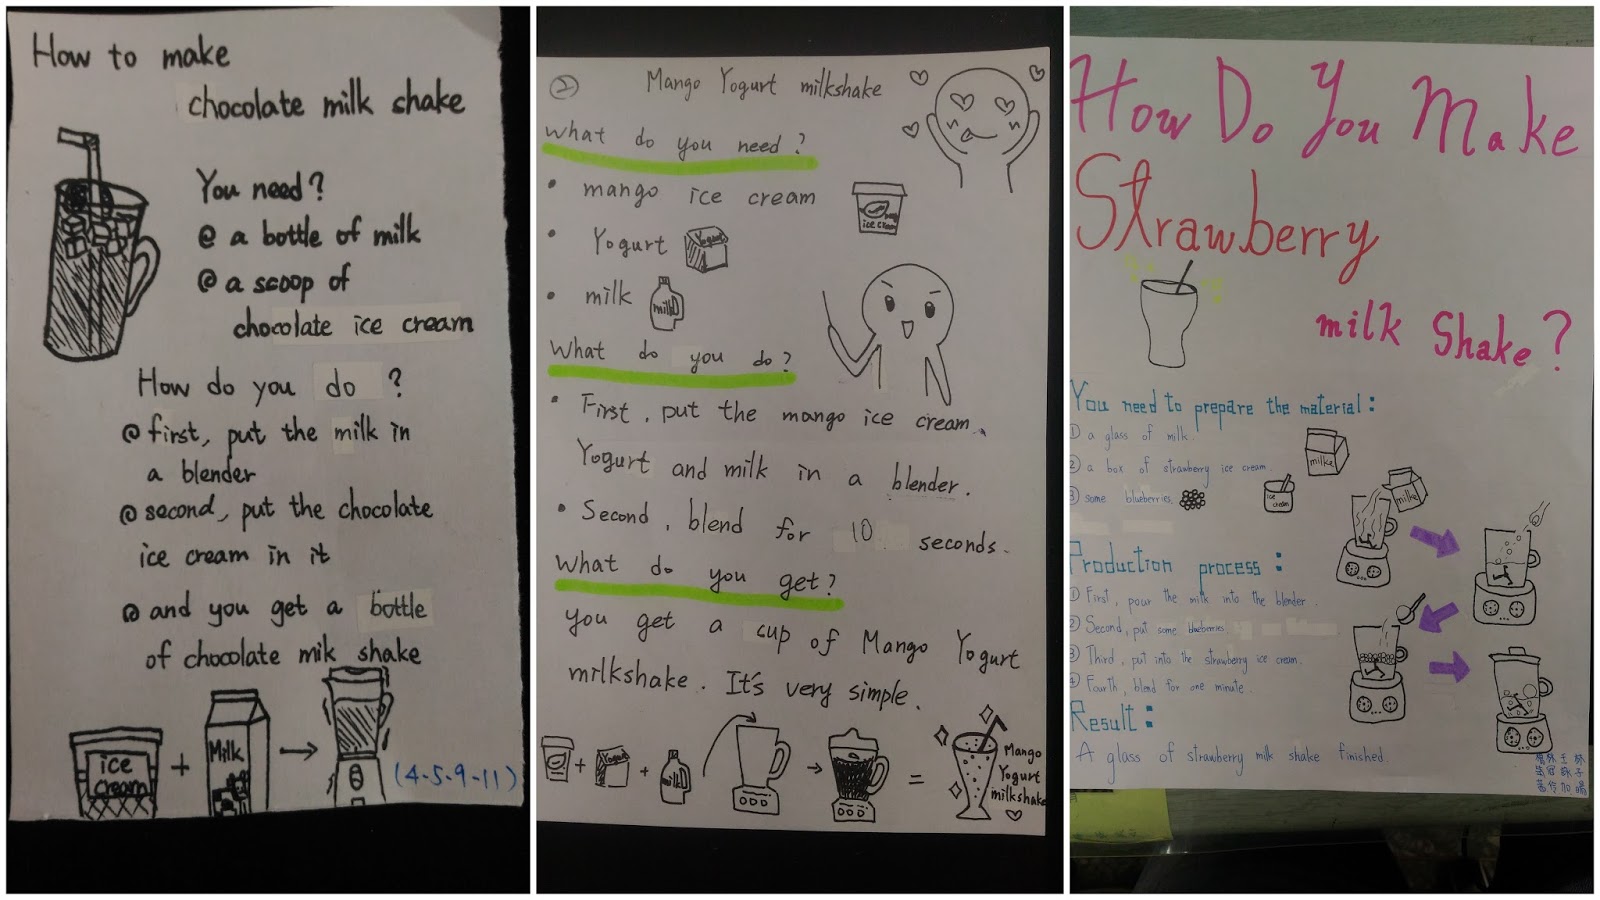 How to make
chocolate milk shake
You need?
@ a bottle of milk
@ a scoop of
chocolate ice cream
How do you do ?
@ first, put the milk in
a blender
@ second, put the chocolate
ice cream in it
@ and you get a bottle
of chocolate mik shake
ice
cream
+
Milk
→
(4-5-9-11)
②
Mango Yogurt milkshake
What do you need?
• mango ice cream
ice cream
• Yogurt
Yogurt
• milk
milk
What do you do?
• First, put the mango ice cream,
Yogurt and milk in a blender.
• Second, blend for 10 seconds.
What do you get?
you get a cup of Mango Yogurt
milkshake. It's very simple.
+ Yogurt + milk → =
Mango
Yogurt
milkshake
How Do You Make
Strawberry
milk Shake?
You need to prepare the material:
① a glass of milk.
② a box of strawberry ice cream.
③ some blueberries.
milke
ice
cream
milke
Production process:
① First, pour the milk into the blender.
② Second, put some blueberries.
③ Third, put into the strawberry ice cream.
④ Fourth, blend for one minute.
Result:
A glass of strawberry milk shake finished.